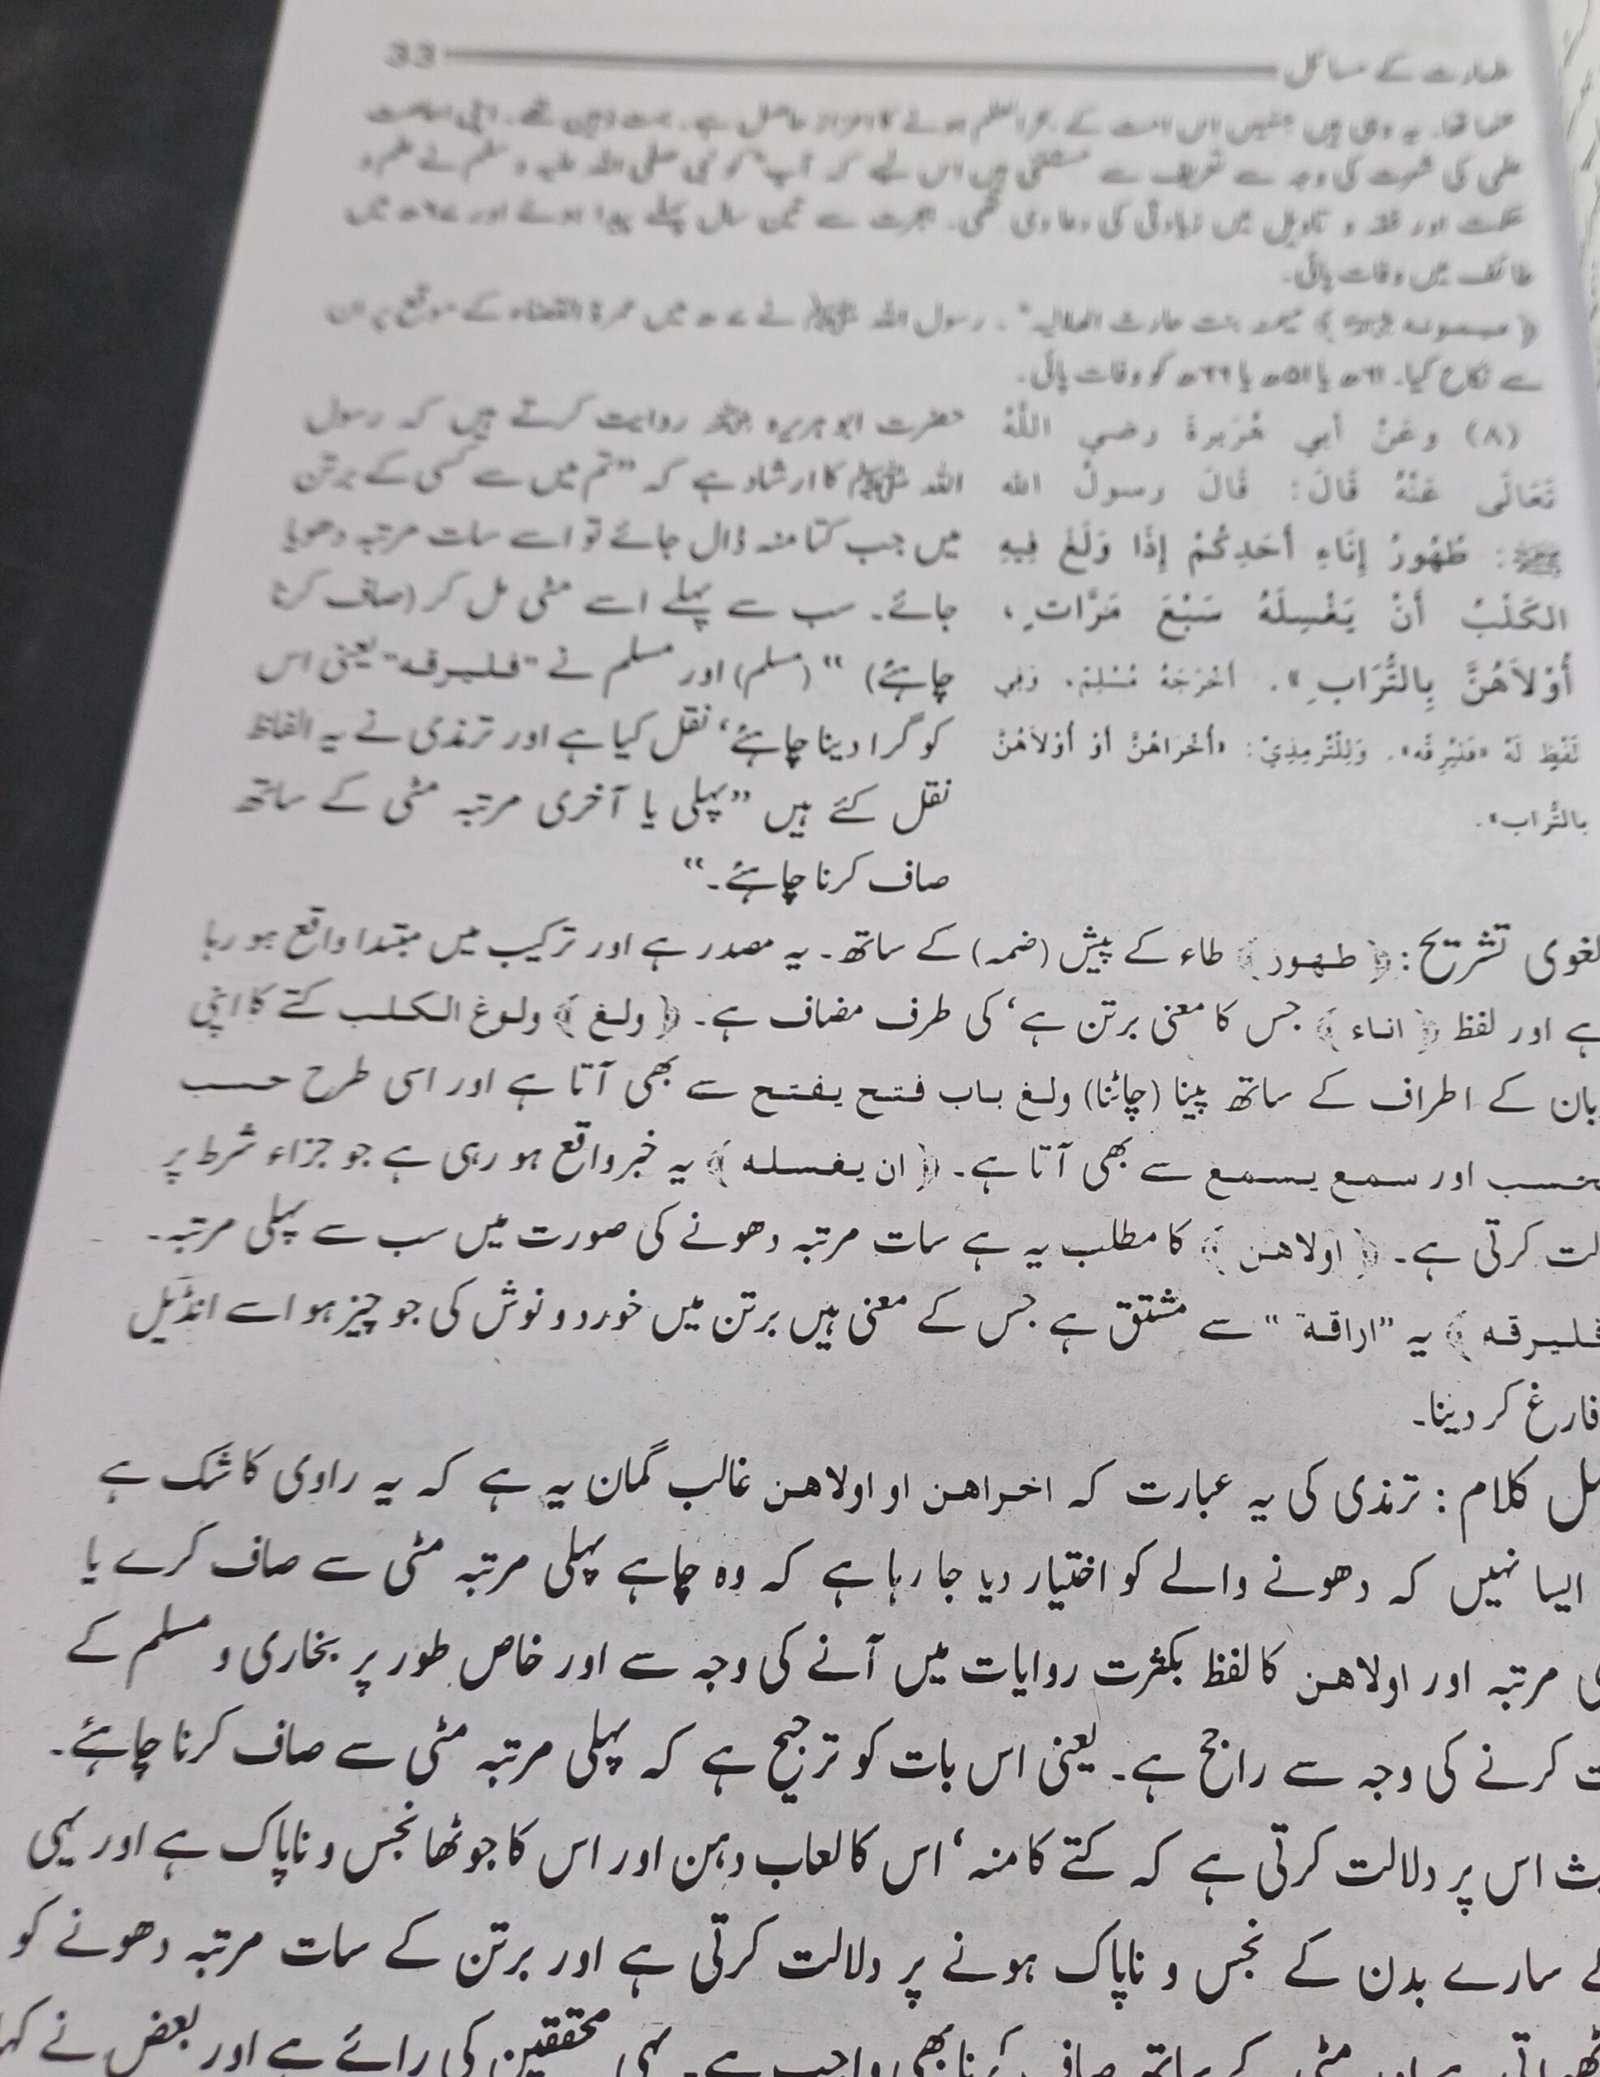 طہارت کے مسائل 33
علمی کی شہرت کی وجہ سے تعریف سے مستثنیٰ ہیں اس لیے کہ آپ کو نبی صلی اللہ علیہ و سلم نے علم و
حکمت اور فقہ و تاویل میں زیادتی کی دعا دی تھی۔ ہجرت سے تین سال پہلے پیدا ہوئے اور ۶۷ھ میں
طائف میں وفات پائی۔
﴿ میمونہ ﴾ میمونہ بنت حارث الھلالیہ۔ رسول اللہ ﷺ نے ۷ھ میں عمرۃ القضاء کے موقع پر ان
سے نکاح کیا۔ ۶۱ھ یا ۵۱ھ یا ۶۶ھ کو وفات پائی۔
(۸) وعَنْ أبي هُرَيرةَ رضي اللَّهُ
تَعَالَى عَنْهُ قَالَ: قَالَ رسولُ الله
ﷺ: طُهُورُ إِنَاءِ أَحَدِكُمْ إِذَا وَلَغَ فِيهِ
الكَلْبُ أَنْ يَغْسِلَهُ سَبْعَ مَرَّاتٍ،
أُوْلاَهُنَّ بِالتُّرَابِ». أخْرَجَهُ مُسْلِمٌ، وَفِي
لَفْظٍ لَهُ «فَلْيُرِقْه». وَلِلتِّرمِذِيِّ: «أخْرَاهُنَّ أوْ أوْلاَهُنَّ
بالتُّراب».
حضرت ابو ہریرہ رضی اللہ عنہ روایت کرتے ہیں کہ رسول
اللہ ﷺ کا ارشاد ہے کہ ”تم میں سے کسی کے برتن
میں جب کتا منہ ڈال جائے تو اسے سات مرتبہ دھویا
جائے۔ سب سے پہلے اسے مٹی مل کر (صاف کرنا
چاہئے) “ (مسلم) اور مسلم نے ”فلیرقہ“ یعنی اس
کو گرا دینا چاہئے‘ نقل کیا ہے اور ترمذی نے یہ الفاظ
نقل کئے ہیں ”پہلی یا آخری مرتبہ مٹی کے ساتھ
صاف کرنا چاہئے۔“
لغوی تشریح: ﴿ طہور ﴾ طاء کے پیش (ضمہ) کے ساتھ۔ یہ مصدر ہے اور ترکیب میں مبتدا واقع ہو رہا
ہے اور لفظ ﴿ اناء ﴾ جس کا معنی برتن ہے‘ کی طرف مضاف ہے۔ ﴿ ولغ ﴾ ولوغ الکلب کتے کا اپنی
بان کے اطراف کے ساتھ پینا (چاٹنا) ولغ باب فتح یفتح سے بھی آتا ہے اور اسی طرح حسب
یحسب اور سمع یسمع سے بھی آتا ہے۔ ﴿ ان یغسلہ ﴾ یہ خبر واقع ہو رہی ہے جو جزاء شرط پر
لت کرتی ہے۔ ﴿ اولاھن ﴾ کا مطلب یہ ہے سات مرتبہ دھونے کی صورت میں سب سے پہلی مرتبہ۔
فلیرقہ ﴾ یہ ”اراقۃ“ سے مشتق ہے جس کے معنی ہیں برتن میں خورد و نوش کی جو چیز ہو اسے انڈیل
فارغ کر دینا۔
صل کلام: ترمذی کی یہ عبارت کہ اخراھن او اولاھن غالب گمان یہ ہے کہ یہ راوی کا شک ہے
ایسا نہیں کہ دھونے والے کو اختیار دیا جا رہا ہے کہ وہ چاہے پہلی مرتبہ مٹی سے صاف کرے یا
ی مرتبہ اور اولاھن کا لفظ بکثرت روایات میں آنے کی وجہ سے اور خاص طور پر بخاری و مسلم کے
ت کرنے کی وجہ سے راجح ہے۔ یعنی اس بات کو ترجیح ہے کہ پہلی مرتبہ مٹی سے صاف کرنا چاہئے۔
یث اس پر دلالت کرتی ہے کہ کتے کا منہ‘ اس کا لعاب دہن اور اس کا جوٹھا نجس و ناپاک ہے اور یہی
کے سارے بدن کے نجس و ناپاک ہونے پر دلالت کرتی ہے اور برتن کے سات مرتبہ دھونے کو
ہے اور مٹی کے ساتھ صاف کرنا بھی واجب ہے۔ یہی محققین کی رائے ہے اور بعض نے کہا